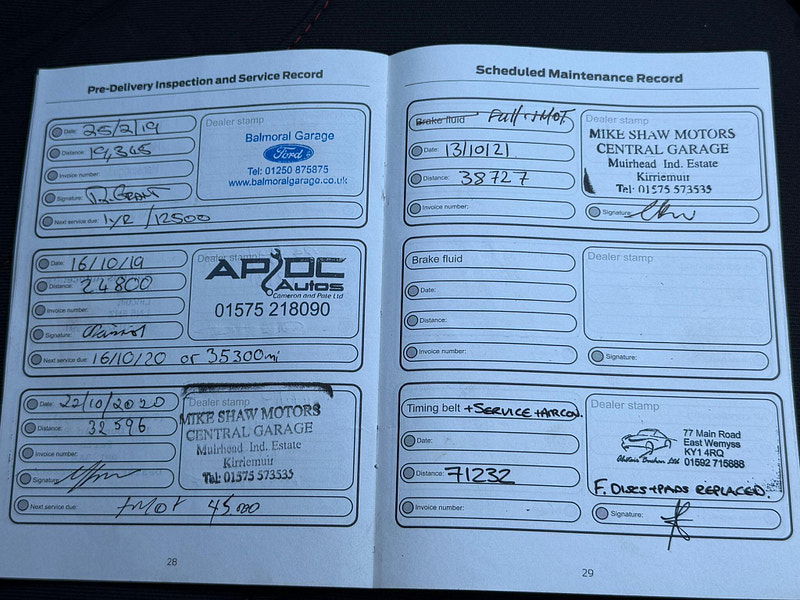 Pre-Delivery Inspection and Service Record
Date: 25/2/19
Distance: 19,345
Invoice number:
Signature: D. GRANT
Next service due: 1YR / 12500
Dealer stamp
Balmoral Garage
Ford
Tel: 01250 875875
www.balmoralgarage.co.uk
Date: 16/10/19
Distance: 24800
Invoice number:
Signature:
Next service due: 16/10/20 or 35300mi
Dealer stamp
AP DC
Autos
Cameron and Pate Ltd
01575 218090
Date: 22/10/2020
Distance: 32596
Invoice number:
Signature:
Next service due: + MOT 45000
Dealer stamp
MIKE SHAW MOTORS
CENTRAL GARAGE
Muirhead Ind. Estate
Kirriemuir
Tel: 01575 573535
28
Scheduled Maintenance Record
Brake fluid Full + MOT
Date: 13/10/21
Distance: 38727
Invoice number:
Dealer stamp
MIKE SHAW MOTORS
CENTRAL GARAGE
Muirhead Ind. Estate
Kirriemuir
Tel: 01575 573535
Signature:
Brake fluid
Date:
Distance:
Invoice number:
Dealer stamp
Signature:
Timing belt + SERVICE + AIRCON.
Date:
Distance: 71232
Invoice number:
Dealer stamp
77 Main Road
East Wemyss
KY1 4RQ
01592 715888
F. DISCS + PADS REPLACED.
Signature:
29